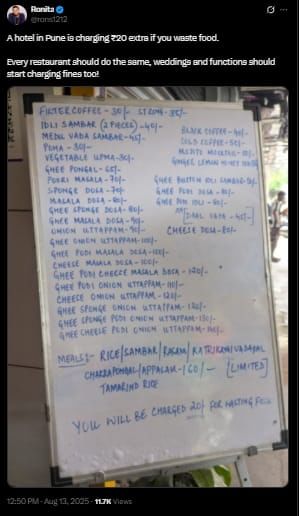 Ronita
@rons1212
A hotel in Pune is charging ₹20 extra if you waste food.
Every restaurant should do the same, weddings and functions should
start charging fines too!
FILTER COFFEE - 30/- STRONG - 35/-
IDLI SAMBAR (2 PIECES) - 40/-
MEDU VADA SAMBAR - 45/-
UPMA - 30/-
VEGETABLE UPMA - 30/-
GHEE PONGAL - 65/-
PODI MASALA - 70/-
SPONGE DOSA - 70/-
MASALA DOSA - 80/-
GHEE SPONGE DOSA - 80/-
GHEE MASALA DOSA - 90/-
ONION UTTAPPAM - 90/-
GHEE ONION UTTAPPAM - 100/-
GHEE PODI MASALA DOSA - 100/-
CHEESE MASALA DOSA - 100/-
GHEE PODI CHEESE MASALA DOSA - 120/-
GHEE PODI ONION UTTAPPAM - 110/-
CHEESE ONION UTTAPPAM - 120/-
GHEE SPONGE ONION UTTAPPAM - 120/-
GHEE SPONGE PODI ONION UTTAPPAM - 130/-
GHEE CHEESE PODI ONION UTTAPPAM - 140/-
BLACK COFFEE - 40/-
COLD COFFEE - 50/-
MOJITO MOCKTAIL -
GINGER LEMON HONEY
GHEE BUTTON IDLI SAMBAR -
GHEE PODI DOSA - 80/-
GHEE PODI IDLI - 80/-
CHEESE DOSA - 80/-
MEALS :- RICE/SAMBAR/RASAM/KATRIKAI VADAYAL
CHAKRAPONGAL/APPALAM - 160/- [LIMITED]
TAMARIND RICE
YOU WILL BE CHARGED 20/- FOR WASTING FOOD
12:50 PM · Aug 13, 2025 · 11.7K Views